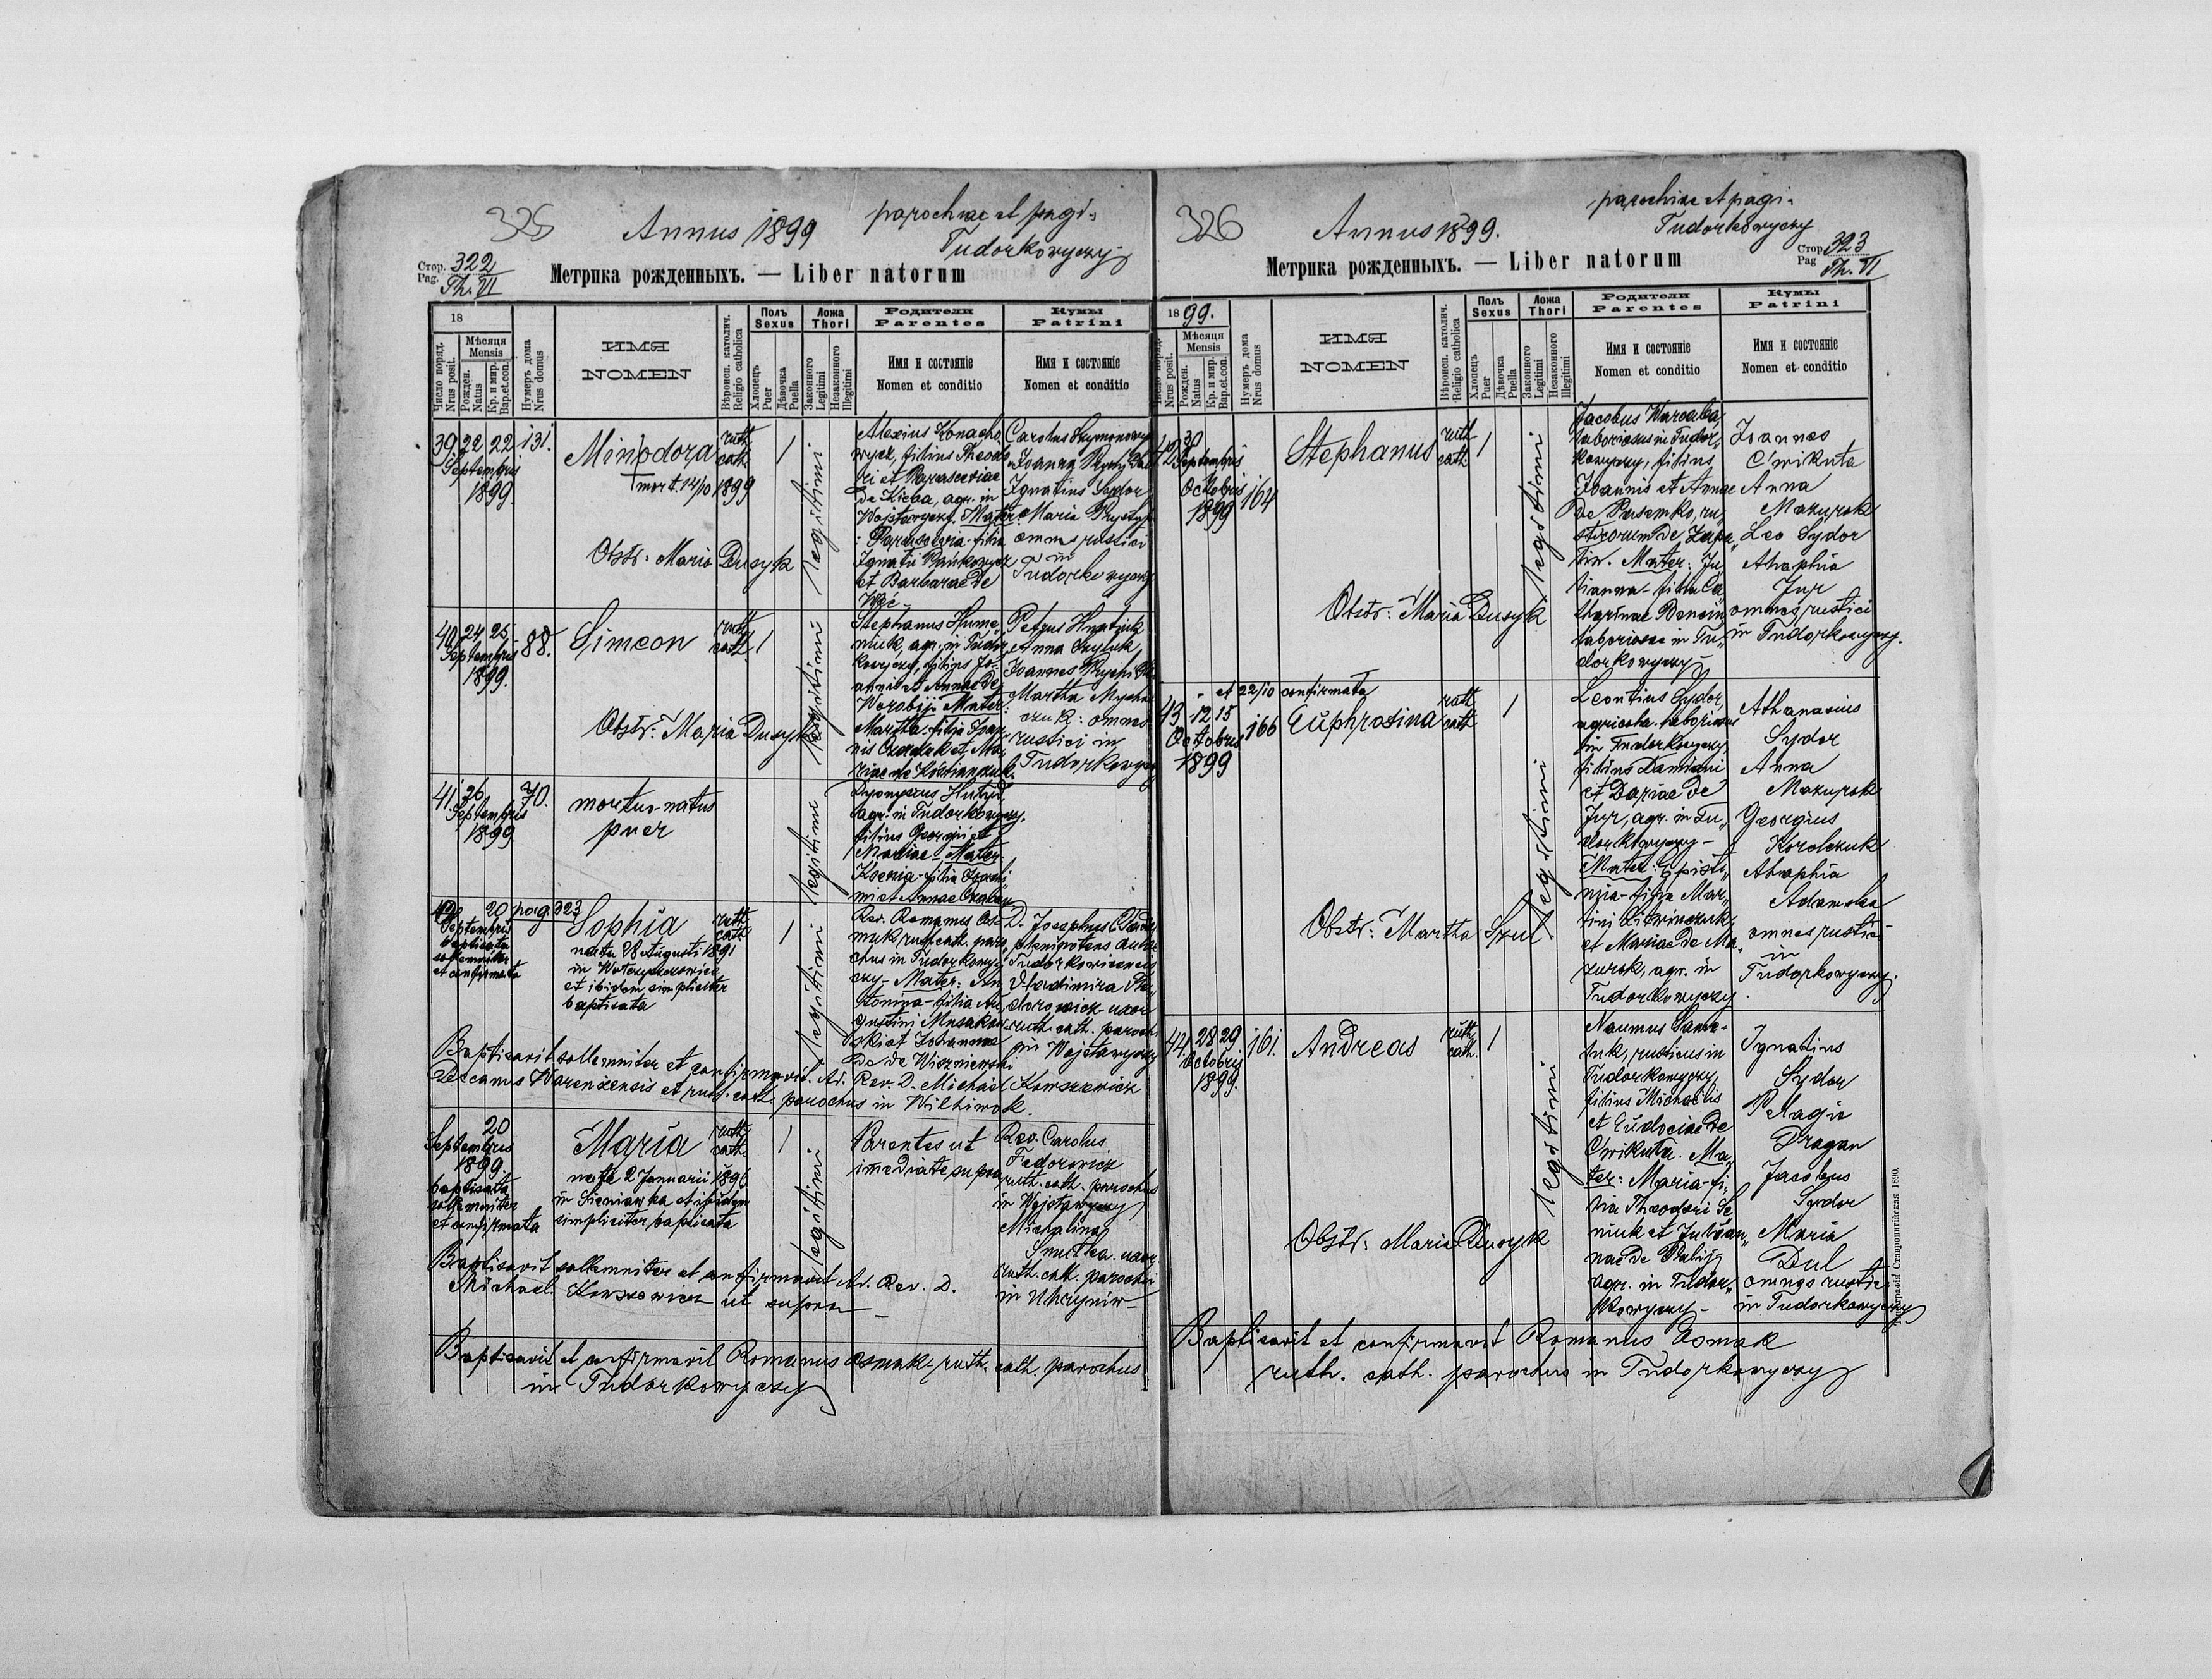 325
Annus 1899
parochiae et pagi
Tudorkowyczy
Стор. Pag. 322
Th. VI
Метрика рожденныхъ. — Liber natorum
18
Число поряд. Nrus posit.
Мѣсяця Mensis
Рожден. Natus
Кр. и мир. Bap.et.con.
Нумеръ дома Nrus domus
ИМЯ
NOMEN
Вѣроисп. католич. Religio catholica
Полъ Sexus
Хлопець Puer
Дѣвочка Puella
Ложа Thori
Законного Legitimi
Незаконного Illegitimi
Родители Parentes
Имя и состояніе
Nomen et conditio
Кумы Patrini
Имя и состояніе
Nomen et conditio
39 22 22 131.
Septembris
1899
Minodora
mort. 14/10 1899
ruth.
cath.
1
legitimi
Obstr: Maria Dusyk
Alexius Konacho
wycz, filius Theodo
ri et Parasceviae
de Kicba, agr. in
Wojstawyczy. Mater
: Parascevia - filia
Ignatii Pańkowycz
et Barbarae de
Carolus Szymonowycz
Ignatius Sydor
Maria
omnes rustici
in
Tudorkowyczy
40 24 25 88.
Septembris
1899.
Simeon
ruth.
cath.
1
legitimi
Obstr: Maria Dusyk
Stephanus Hume,
niuk, agr. in Tudor
kowyczy, filius Jo
annis et Annae de
Worobij. Mater:
Martha - filia Joan
nis
riae de
Petrus Hnatiuk
Anna
Joannes
Martha
czuk: omnes
rustici in
Tudorkowyczy
41. 26 70.
Septembris
1899
mortuo-natus
puer
legitimi
Dyonysius
agr. in Tudorkowyczy,
filius Georgii et
Mariae. Mater:
Ksenia - filia
mi et Annae
20 pag. 323
Septembris
baptisata
solemniter
et confirmata
Sophia
nata 28 Augusti 1891
in
et ibidem simpliciter
baptisata
ruth.
cath.
1
legitimi
Rev. Romanus Os
mak ruth. cath. paro
chus in Tudorkowy
czy - Mater: An
tonina - filia Au
gustini
ski et Johannae
de Wiszniewski
D. Josephus
plenipotens
Tudorkowicensis
Vladimira Fe
dorowicz - uxor
ruth. cath. parochi
in Wojstawyczy
Baptisavit sollemniter et confirmavit. Ad. Rev. D. Michael Kowszewicz
Decanus Warenzensis et ruth. cath. parochus in
20
Septembris
1899.
baptisata
sollemniter
et confirmata
Maria
nata 2 Januarii 1896
in Sieniawka et ibidem
simpliciter baptisata
ruth.
cath.
1
legitimi
Parentes ut
immediate supra
Rev. Carolus
Fedorowicz
ruth. cath. parochus
in Wojstawyczy
Michalina
uxor
ruth. cath. parochi
in Uhrynów
Baptisavit sollemniter et confirmavit Ad. Rev. D.
Michael Kowszewicz ut supra
Baptisavit et confirmavit Romanus Osmak - ruth. cath. parochus
in Tudorkowyczy
326
Annus 1899.
parochiae et pagi
Tudorkowyczy
Стор. Pag 323
Th. VI
Метрика рожденныхъ. — Liber natorum
1899.
Число поряд. Nrus posit.
Мѣсяця Mensis
Рожден. Natus
Кр. и мир. Bap.et.con.
Нумеръ дома Nrus domus
ИМЯ
NOMEN
Вѣроисп. католич. Religio catholica
Полъ Sexus
Хлопець Puer
Дѣвочка Puella
Ложа Thori
Законного Legitimi
Незаконного Illegitimi
Родители Parentes
Имя и состояніе
Nomen et conditio
Кумы Patrini
Имя и состояніе
Nomen et conditio
42 30
Septembris
Octobris
1899 164
Stephanus
ruth.
cath.
1
legitimi
Obstr: Maria Dusyk
Jacobus
laboriosus in Tudor,
kowyczy, filius
Joannis et Annae
de
sticorum de
Mater: Ju
lianna - filia Ca
therinae
laboriosae in Tu
dorkowyczy
Joannes
Ćwikuta
Anna
Mazurok
Leo Sydor
Ahaphia
Jur
omnes rustici
in Tudorkowyczy.
43 12 15 166
Octobris
1899
et 22/10 confirmata
Euphrosina
ruth.
cath.
1
legitimi
Obstr: Martha
Leontius Sydor,
agricola laboriosus
in Tudorkowyczy,
filius Damiani
et Dariae de
Jur, agr. in Tu,,
dorkowyczy -
Mater: Episti,,
mia - filia Mar,,
tini Litwinczuk
et Mariae de Ma,,
zurok, agr. in
Tudorkowyczy.
Athanasius
Sydor
Anna
Mazurok
Georgius
Korolczuk
Ahaphia
Adamska
omnes rustici
in
Tudorkowyczy.
44. 28 29 161.
Octobris
1899.
Andreas
ruth.
cath.
1
legitimi
Obstr: Maria Dusyk
Naumus
rusticus in
Tudorkowyczy,
filius Michaelis
et Eudociae de
Cwikuta. Ma,,
ter: Maria - fi,,
lia Theodori Se
niuk et Julian,,
nae de
agr. in Tudor,,
kowyczy -
Ignatius
Sydor
Pelagia
Dragan
Jacobus
Sydor
Maria
Dul
omnes rustici
in Tudorkowyczy
Baptisavit et confirmavit Romanus Osmak
ruth. cath. parochus in Tudorkowyczy
Типографія Ставропигійская 1890.